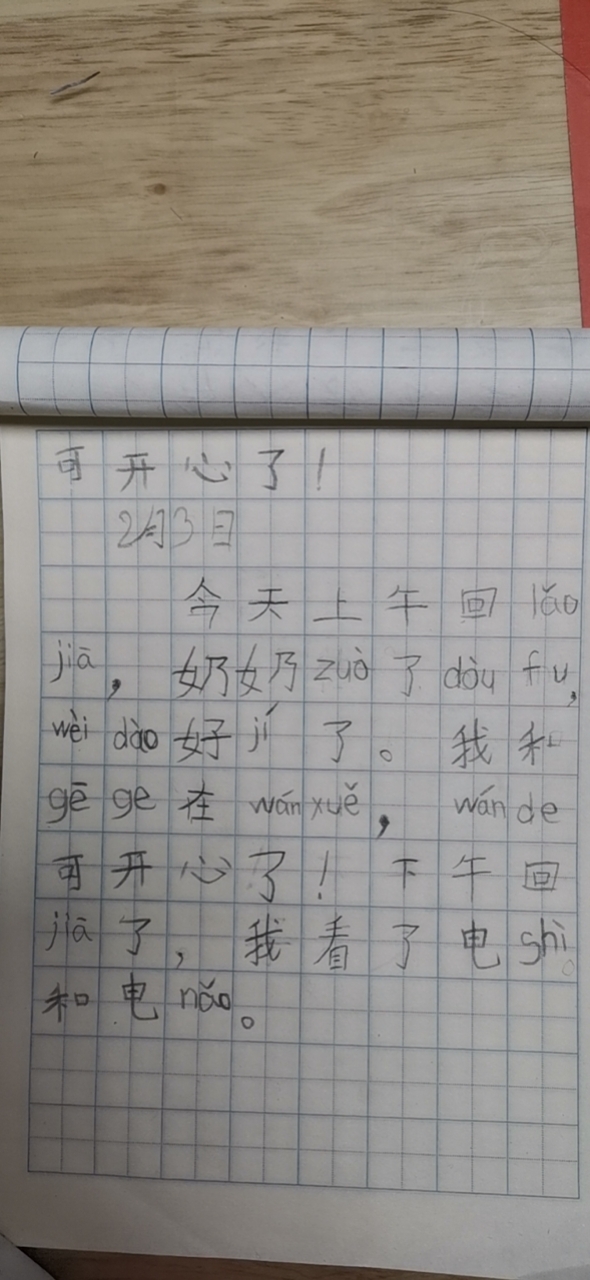 可开心了！
2月3日
今天上午回lǎo
jiā，奶奶zuò了dòu fu，
wèi dào好jí了。我和
gē ge在wán xuě，wán de
可开心了！下午回
jiā了，我看了电shì。
和电nǎo。